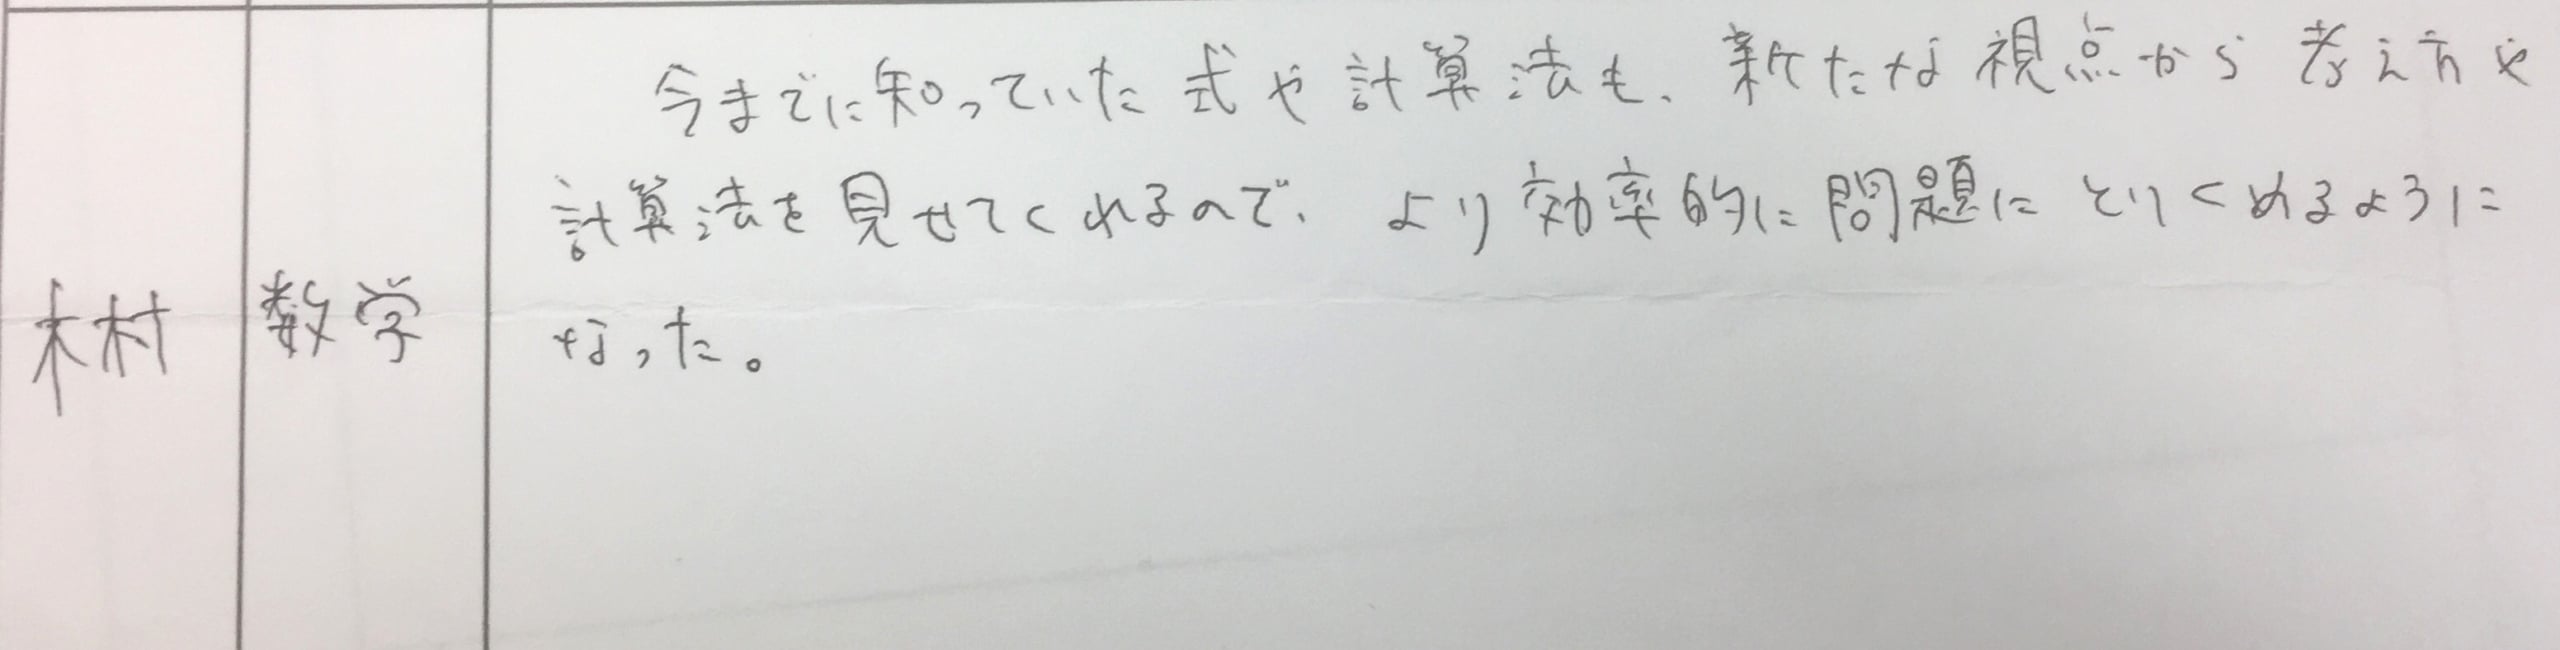 今までに知っていた式や計算法も、新たな視点から考え方や
計算法を見せてくれるので、より効率的に問題にとりくめるように
木村 数学 なった。